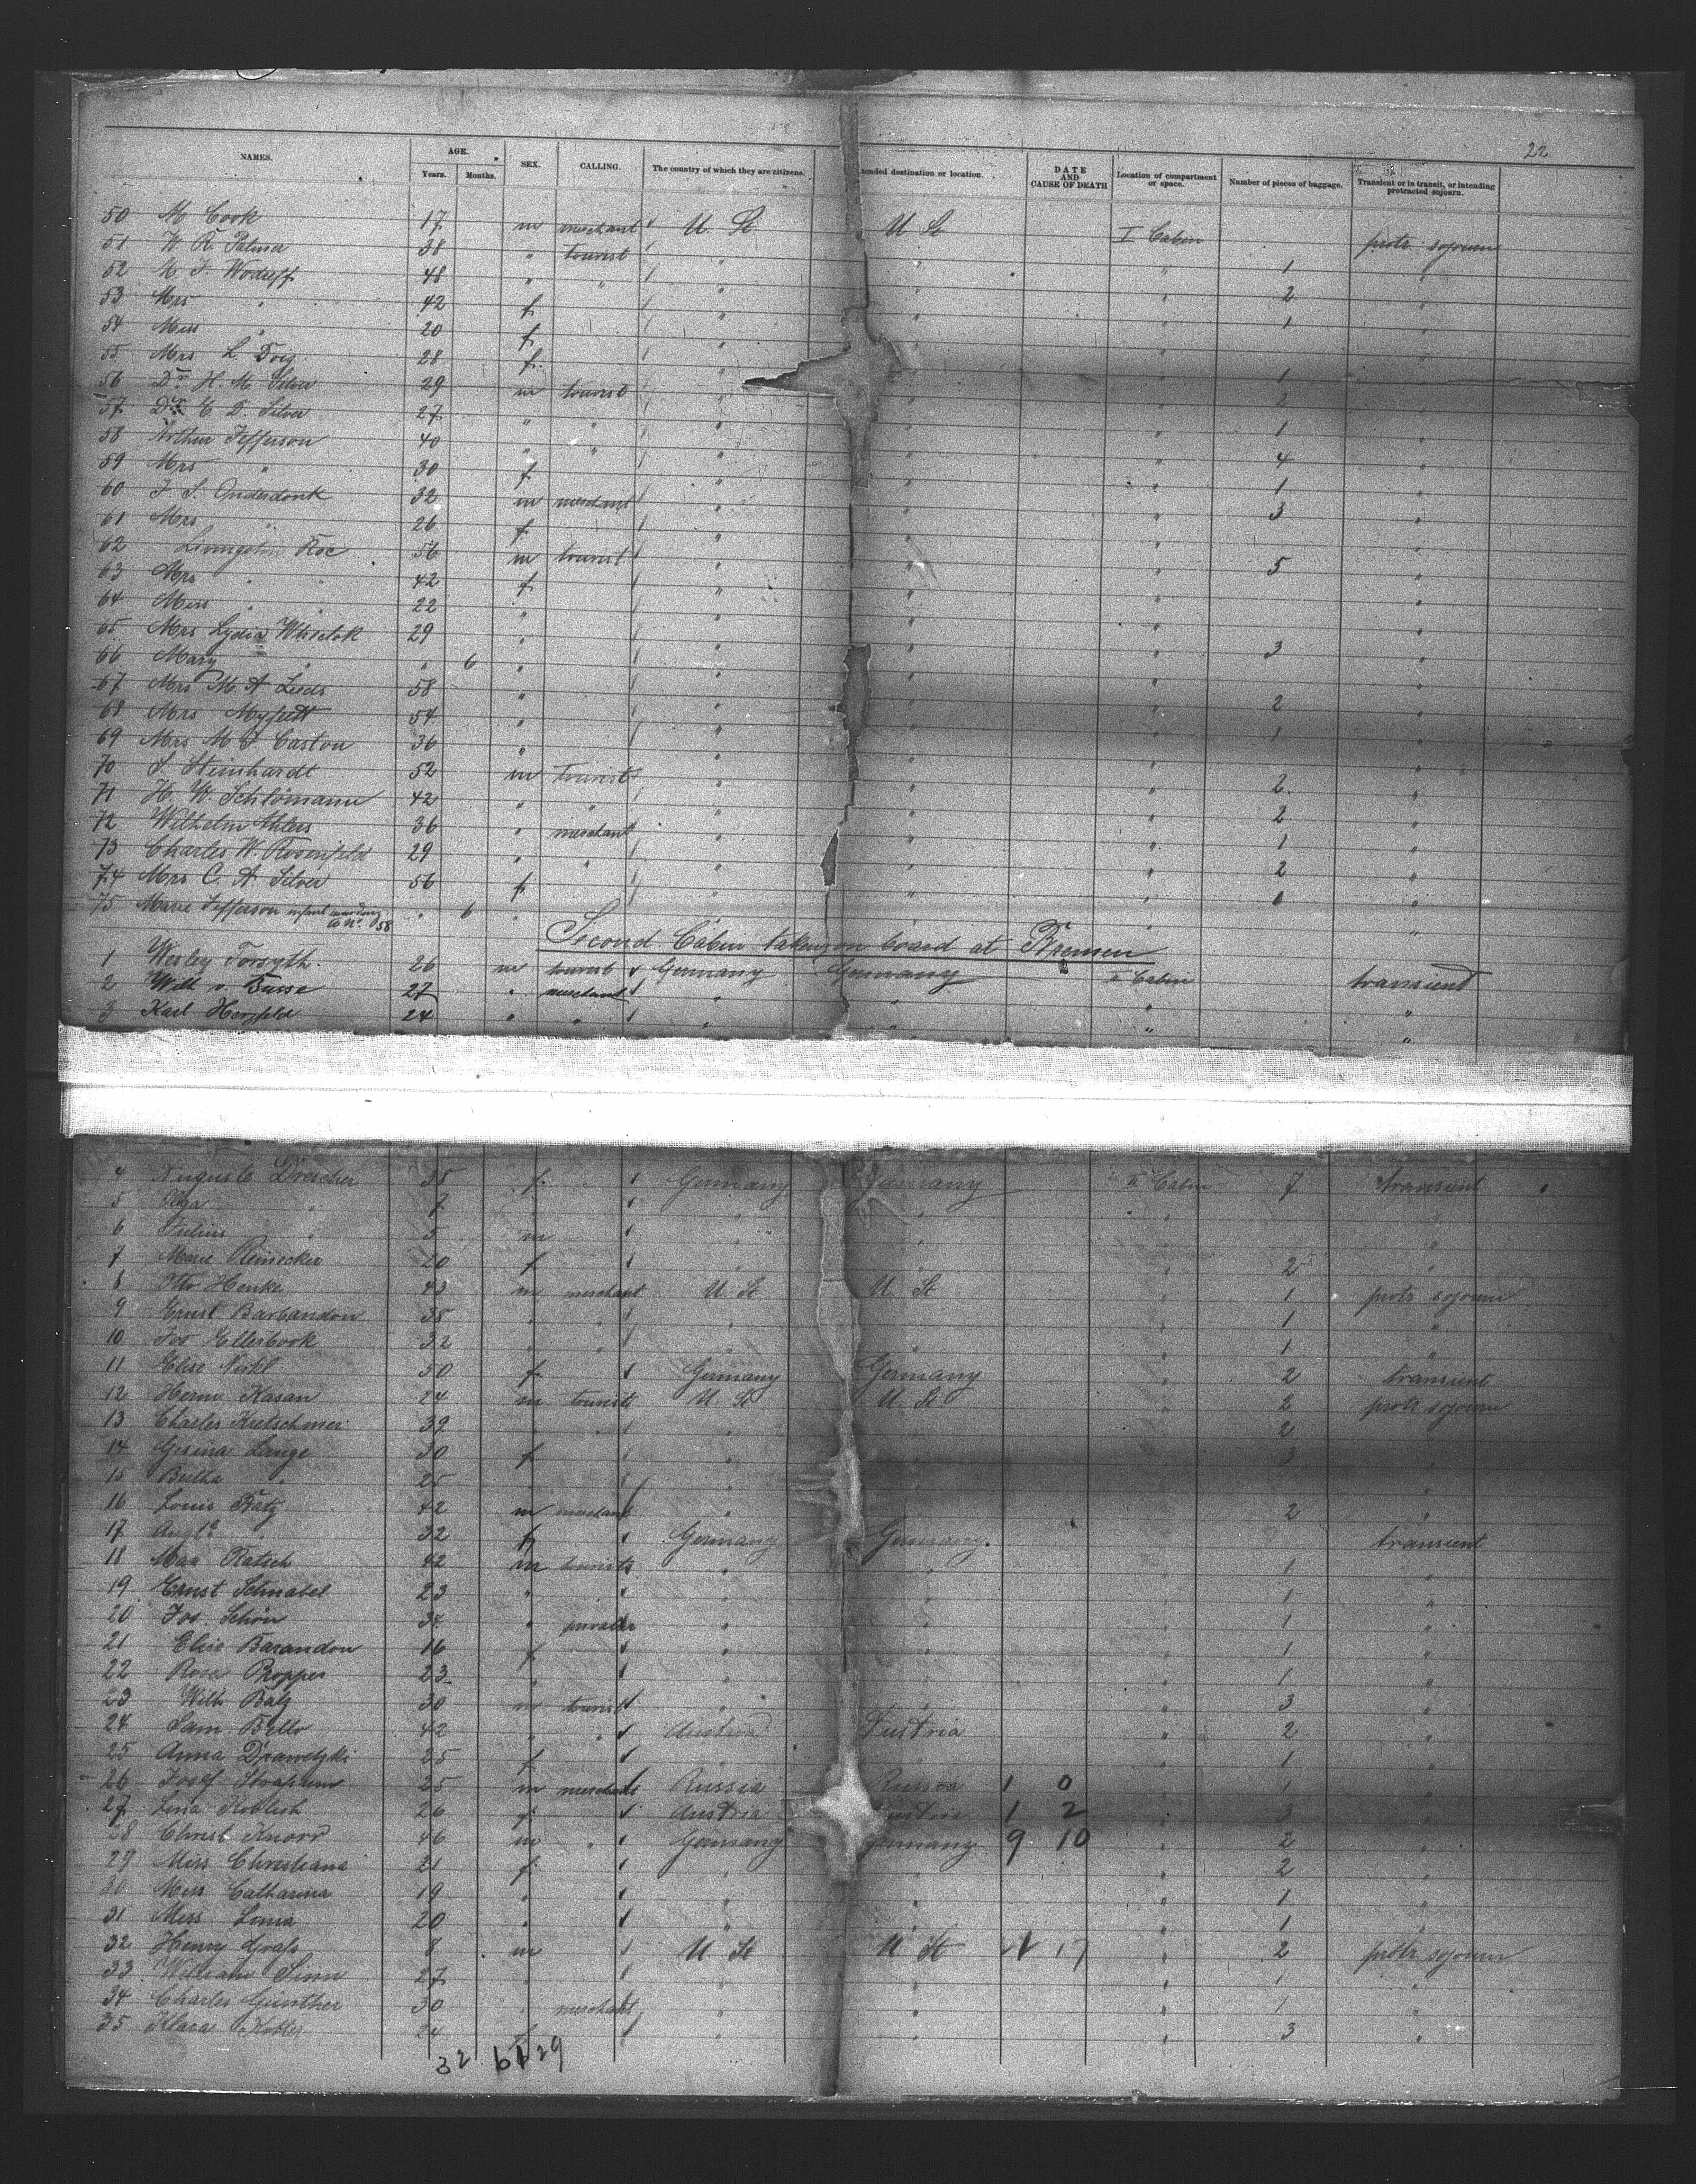 22
NAMES. AGE. Years. Months. SEX. CALLING. The country of which they are citizens. tended destination or location. DATE AND CAUSE OF DEATH Location of compartment or space. Number of pieces of baggage. Transient or in transit, or intending protracted sojourn.
50 M Cook 17 m merchant U. St U St I Cabin protr. sojourn
51 W R. Palmer 38 " tourist " " " 1 "
52 M. F. Wodruff 48 " " " " " 2 "
53 Mrs " 42 f " " " 1 "
54 Miss " 20 f " " "
55 Mrs L. Doig 28 f " " 1 "
56 Dr H. M. Silver 29 m tourist " " 2 "
57 Dr E. D. Silver 27 " " " " " 1 "
58 Arthur Jefferson 40 " " " " " 4 "
59 Mrs " 30 f " " " 1 "
60 F. S. Onderdonk 32 m merchant " " " 3 "
61 Mrs " 26 f " " "
62 Livingston Roe 56 m tourist " " " 5 "
63 Mrs " " 42 f " " "
64 Miss " " 22 " " " "
65 Mrs Lydia 29 " " " " 3 "
66 Mary " " 6 " " " "
67 Mrs M. A Leeds 58 " " " " 2 "
68 Mrs 54 " " " " 1 "
69 Mrs M F Caston 36 " " " "
70 S. Steinhardt 52 m tourist " " " 2 "
71 H. W. Schlömann 42 " " " " " 2 "
72 Wilhelm Ahlers 36 " merchant " " " 1 "
73 Charles W. Rosenfeld 29 " " " " " 2 "
74 Mrs C. A. Silver 56 f " " " 1 "
75 Marie Jefferson infant " 6 " "
to No. 58
Second Cabin taken on board at Bremen
1 Wesley Forsyth. 26 m tourist Germany Germany II Cabin transient
2 Wilh v. Busse 27 " merchant " " " "
3 Karl Herzfeld 24 " " " " " "
4 Auguste Drescher 35 f Germany Germany II Cabin 7 transient
5 Olga " 7 " " " " "
6 Julius " 5 m " " " "
7 Marie Reinecker 20 f " " " 2 "
8 Otto Henke 43 m merchant U. St U St " 1 protr sojourn
9 Ernst Barbandon 38 " " " " " 1 "
10 Jos Ellerbook 32 " " " " " 1 "
11 Elise 50 f Germany Germany " 2 transient
12 Herm. Kasan 24 m tourist U. St U. St " 2 protr sojourn
13 Charles Kretschmer 39 " " " " " 2 "
14 Gesina Lange 30 f " " " 3 "
15 " 25 " " "
16 Louis Katz 42 m merchant " " 2 "
17 32 f Germany Germany. transient
18 Max Ratsch 42 m tourist " " " 1 "
19 Ernst Schnabel 23 " " " " " 1 "
20 Jos. Schön 34 " " " " 1 "
21 Elise Barandon 16 f " " " 1 "
22 Rosa Propper 23 " " " 1 "
23 Wilh 30 m tourist " " " 3 "
24 Sam. 42 " " Austria Austria " 2 "
25 Anna 25 f " " " 1 "
26 Josef 25 m merchant Russia Russia 1 0 " 1 "
27 Lina 26 f Austria Austria 1 2 " 3 "
28 Christ Knorr 46 m " Germany Germany 9 10 " 2 "
29 Miss Christiana 21 f " " " 2 "
30 Miss Catharina 19 " " " " 1 "
31 Miss 20 " " " " 1 "
32 Henry 8 m U St U St 17 " 2 protr sojourn
33 William Sinn 27 " " " " 1 "
34 Charles Günther 30 " merchant " " " 1 "
35 Klara 24 f " " " 3 "
32 61 29